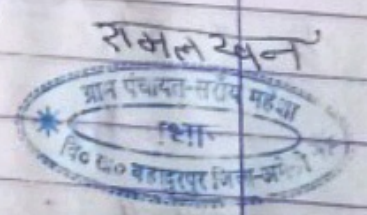 रामलखन
ग्राम पंचायत-सराय महेशा
वि० ख० बहादुरपुर जिला-अमेठी